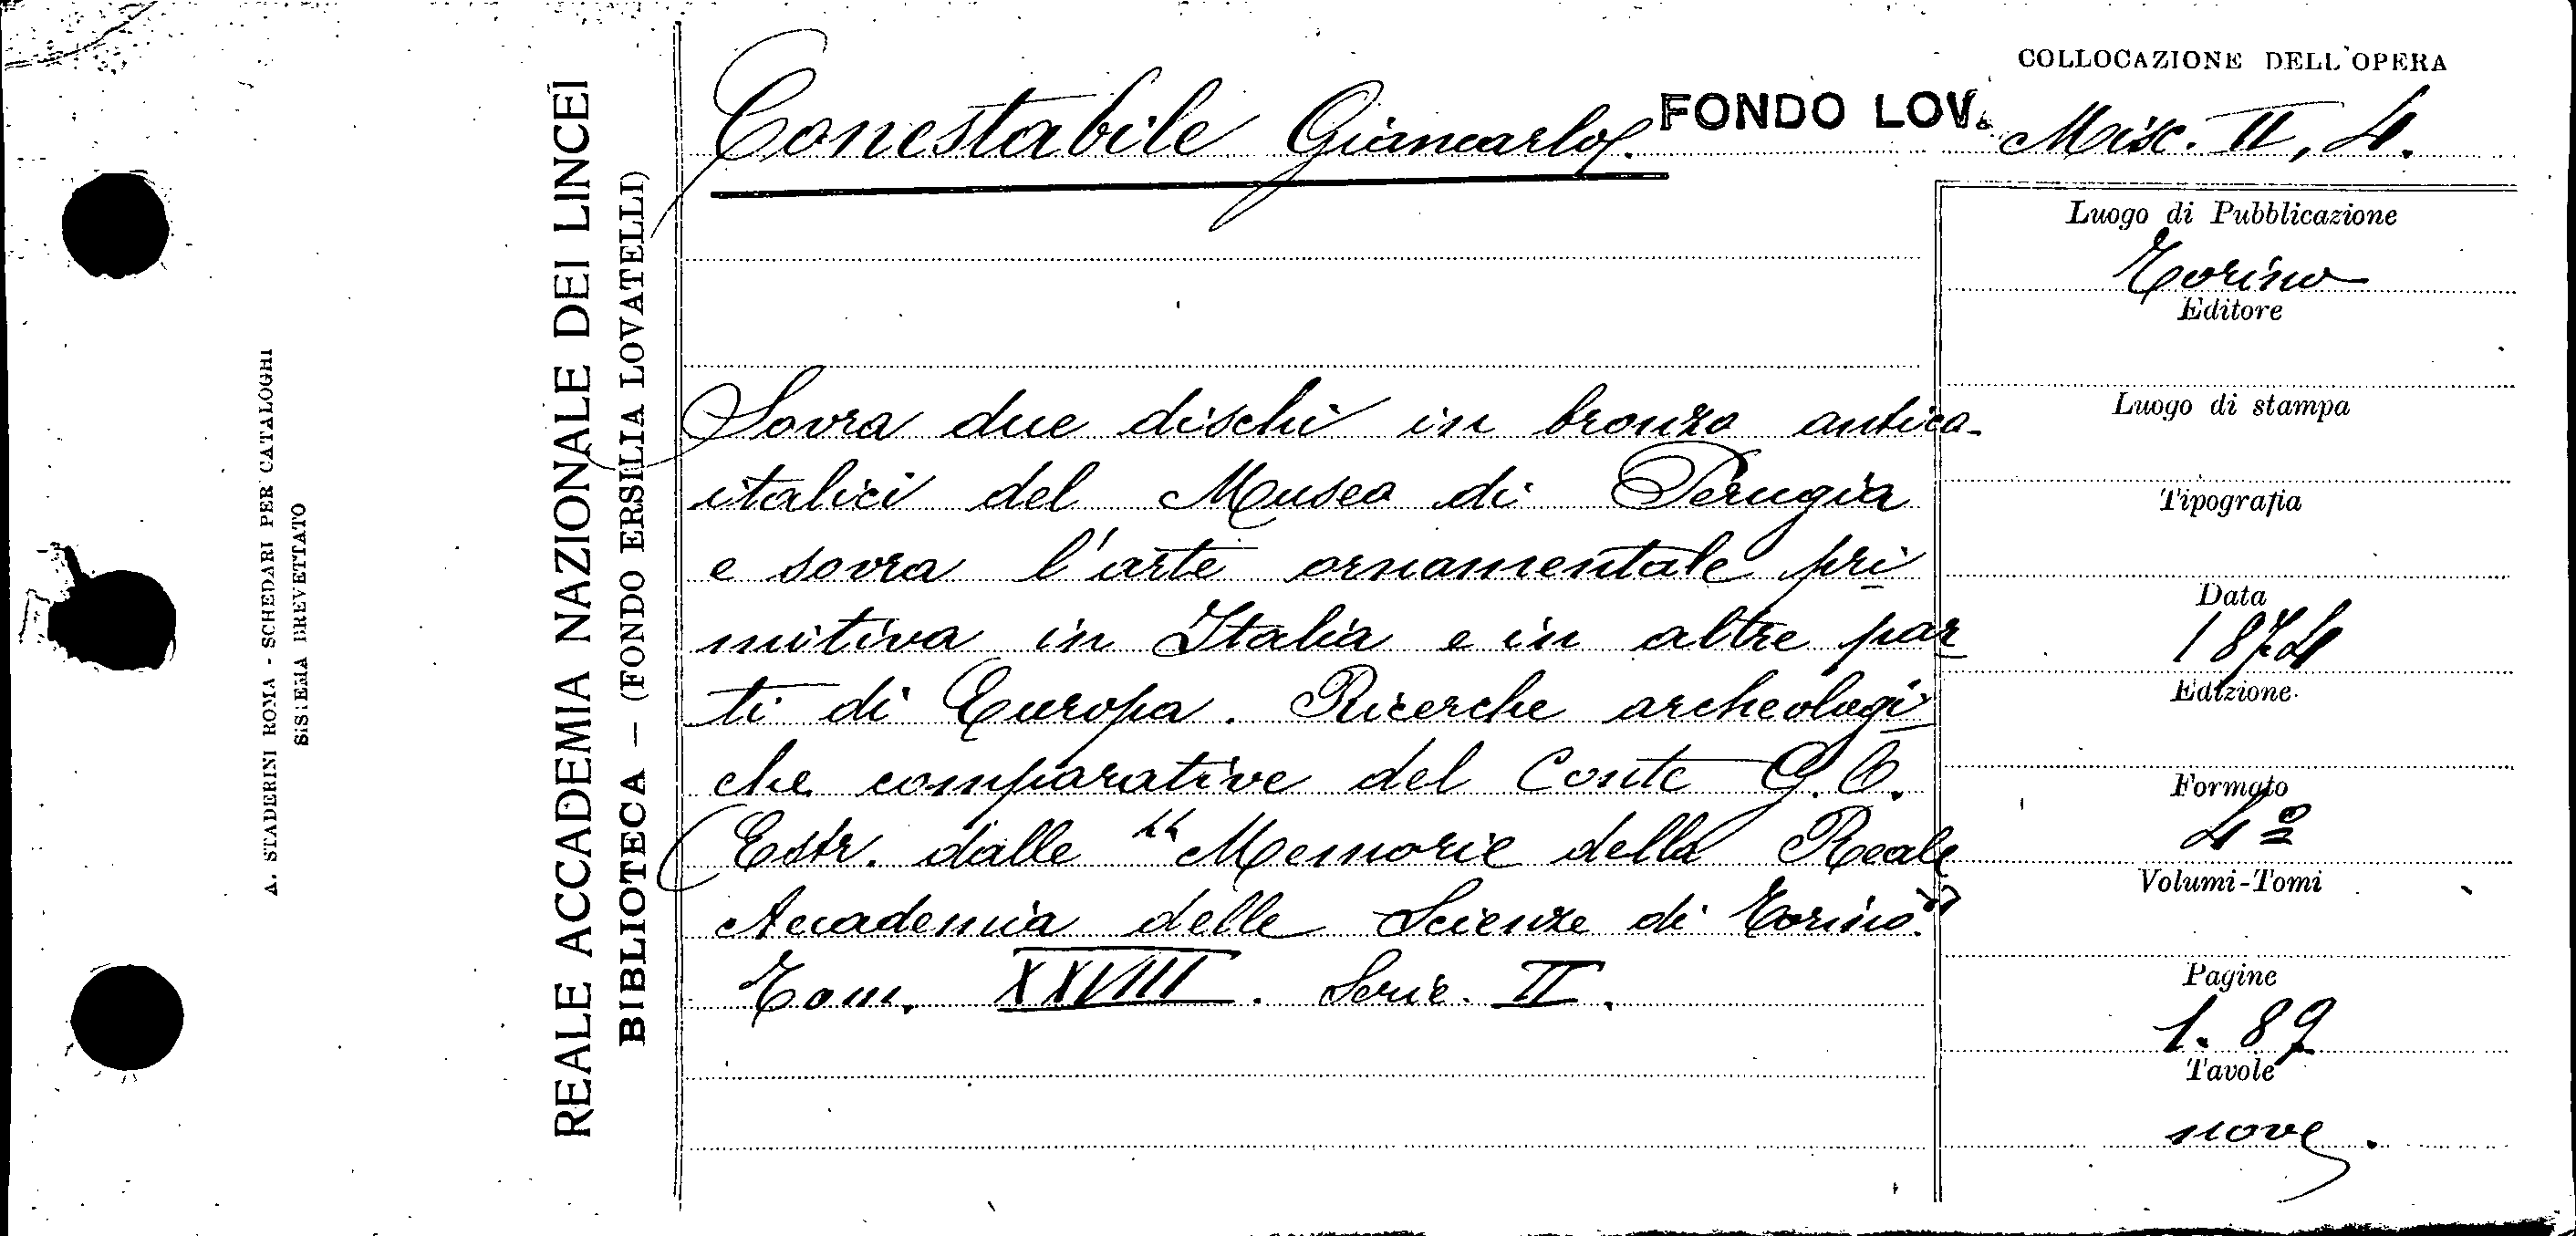 A. STADERINI ROMA - SCHEDARI PER CATALOGHI
SISTEMA BREVETTATO
REALE ACCADEMIA NAZIONALE DEI LINCEI
BIBLIOTECA — (FONDO ERSILIA LOVATELLI)
COLLOCAZIONE DELL'OPERA
Conestabile Giancarlo. FONDO LOV. Misc. II, 4.
Sovra due dischi in bronzo antico-
italici del Museo di Perugia
e sovra l'arte ornamentale pri
mitiva in Italia e in altre par
ti di Europa. Ricerche archeologi
che comparative del Conte G. C.
(Estr. dalle "Memorie della Reale
Accademia delle Scienze di Torino."
Tom. XXVIII. Serie. II.
Luogo di Pubblicazione
Torino
Editore
Luogo di stampa
Tipografia
Data
1874
Edizione
Formato
4º
Volumi-Tomi
Pagine
1. 89
Tavole
nove.